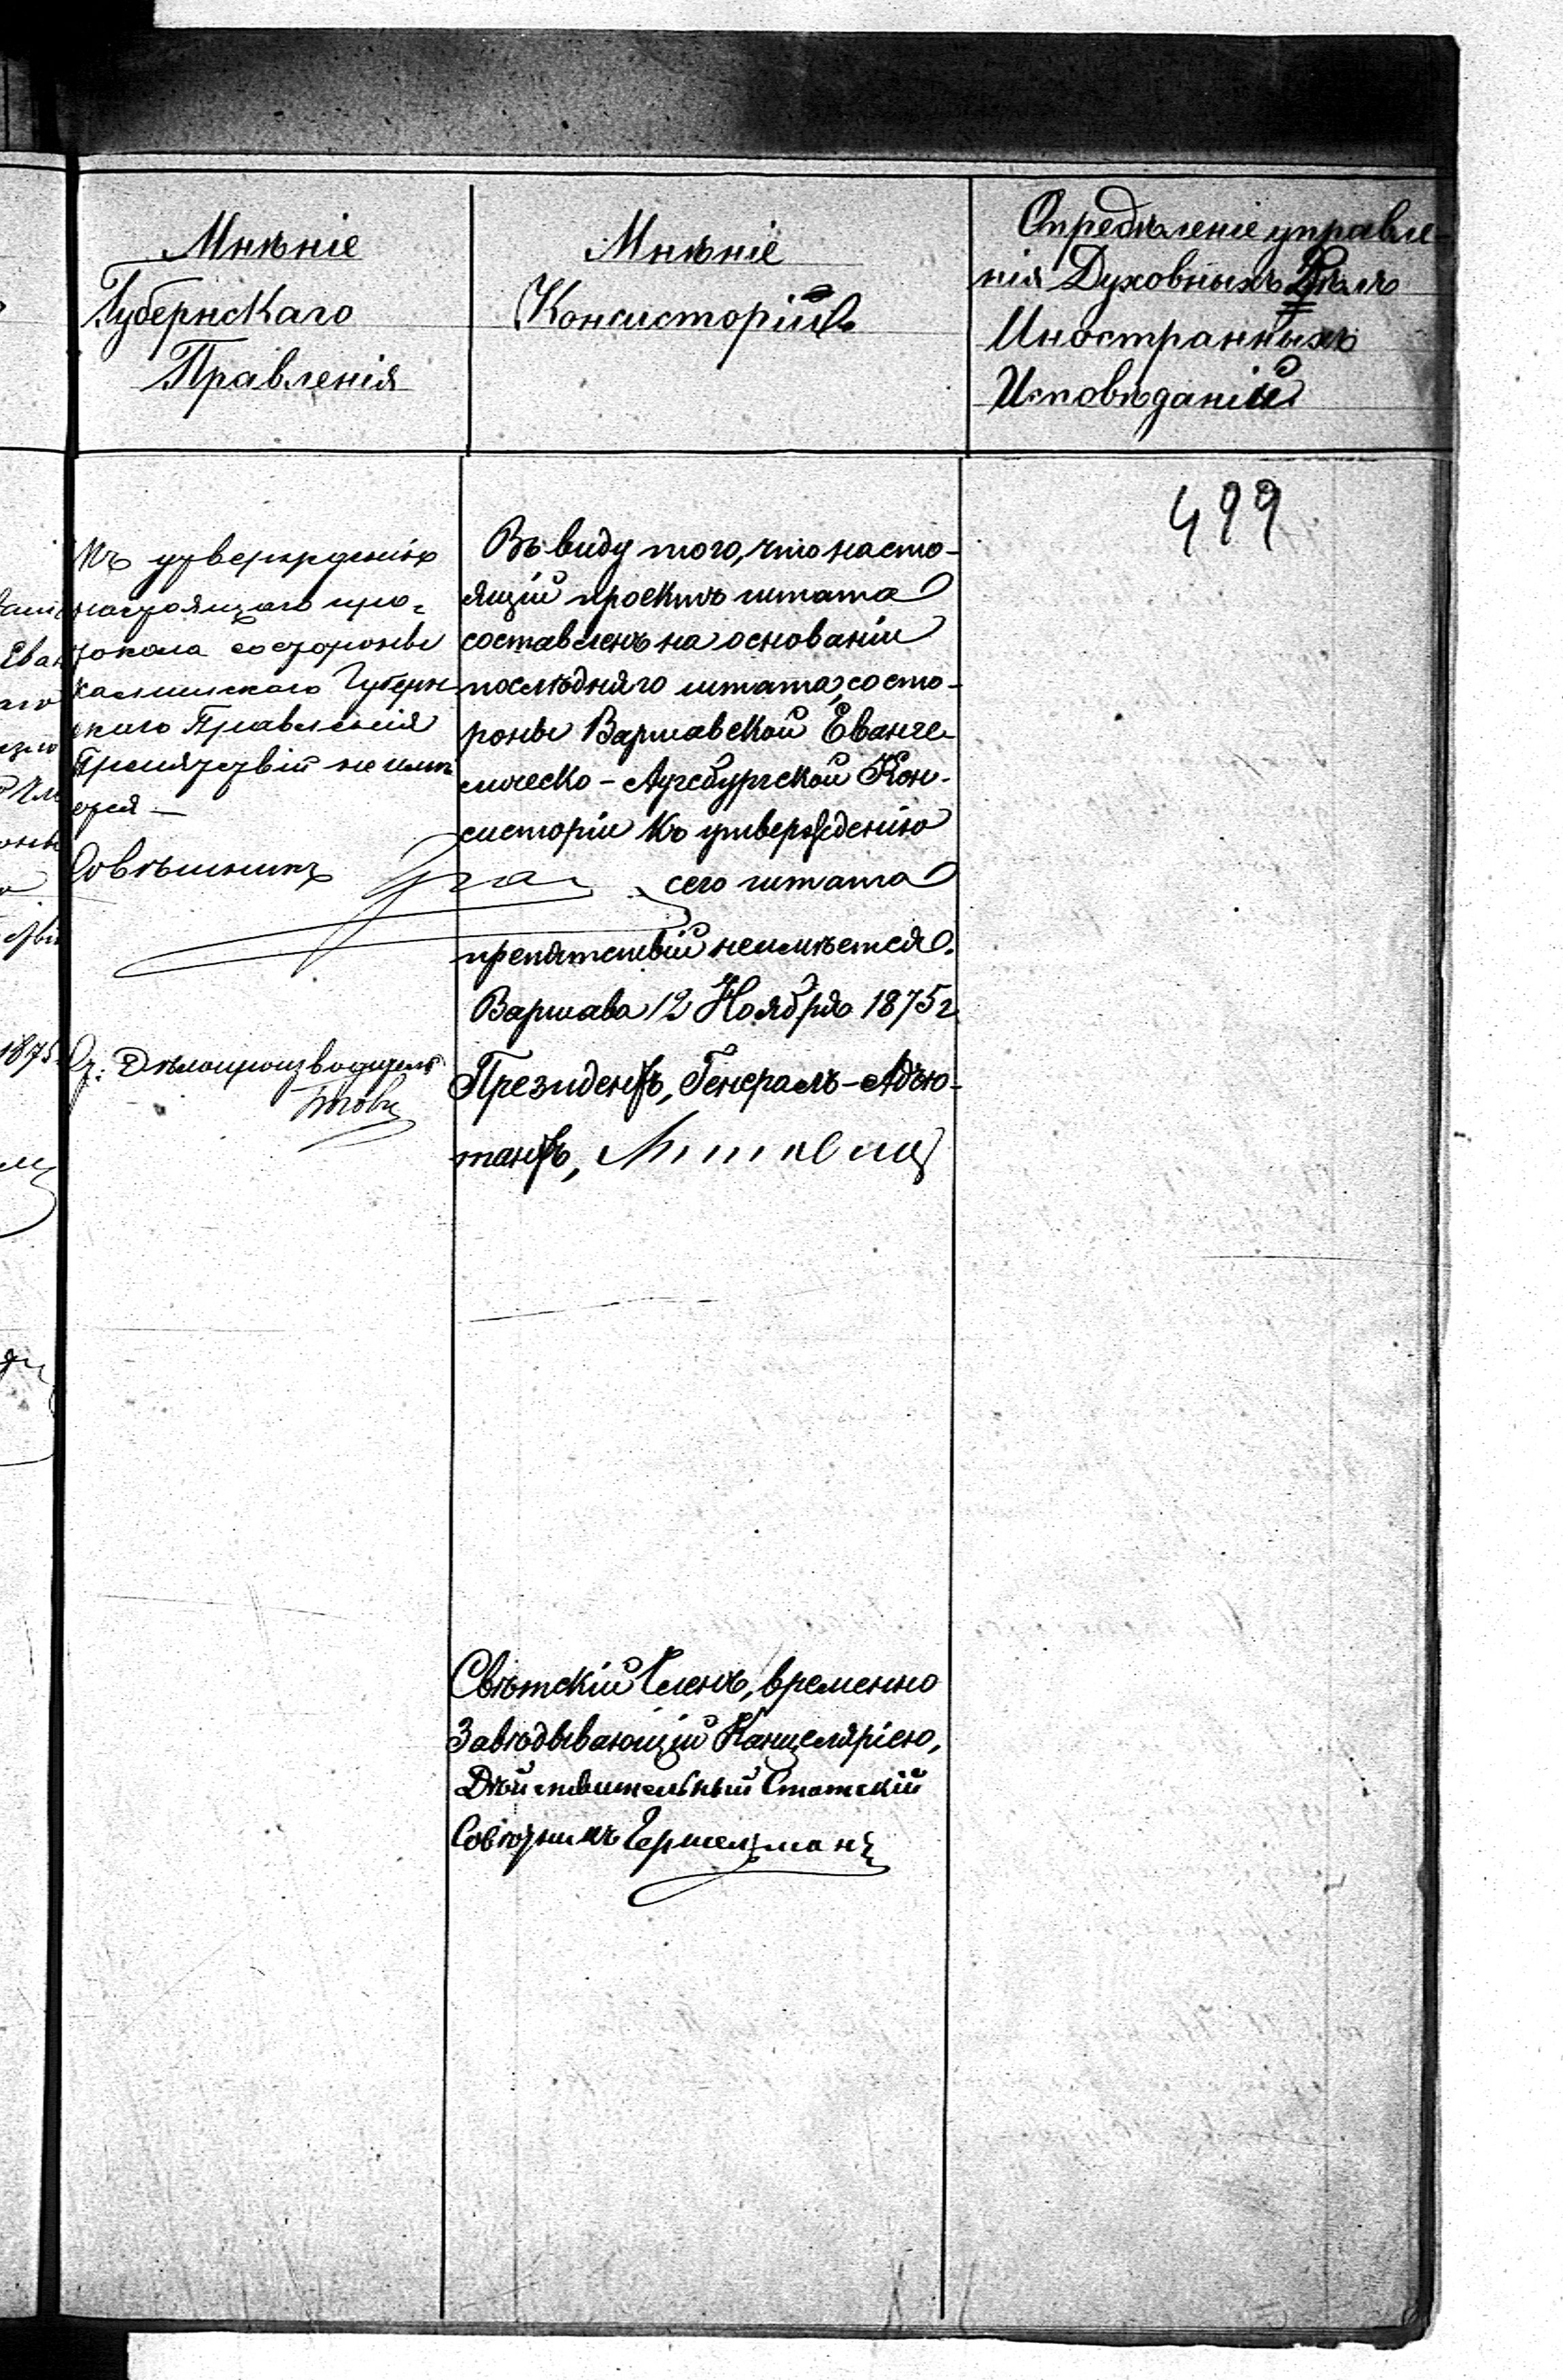 Мнѣніе
Губернскаго
Правленія
Мнѣніе
Консисторіи
Опредѣленіе управле-
нія Духовныхъ Дѣлъ
Иностранныхъ
Исповѣданій
499
Къ утвержденію
настоящаго про-
токола со стороны
Калишскаго Губерн
скаго Правленія
Препятствій не имѣ
ется —
Совѣтникъ
Дѣлопроизводитель
1875
Въ виду того, что насто-
ящій проектъ штата
составленъ на основаніи
послѣдняго штата, со сто-
роны Варшавской Еванге-
лическо-Аугсбургской Кон-
систоріи къ утвержденію
сего штата
препятствій неимѣется.
Варшава 12 Ноября 1875 г
Президентъ, Генералъ-Адъю-
тантъ,
Свѣтскій Членъ, временно
Завѣдывающій Канцеляріею,
Дѣйствительный Статскій
Совѣтникъ